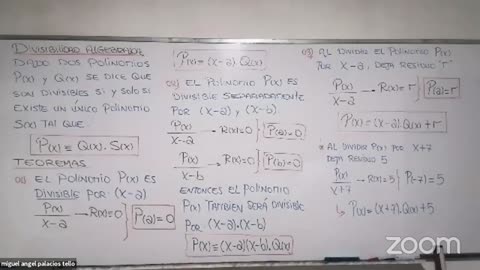 DIVISIBILIDAD ALGEBRAICA
DADO DOS POLINOMIOS
P(x) y Q(x) SE DICE QUE
SON DIVISIBLES SI y SOLO SI
EXISTE UN ÚNICO POLINOMIO
S(x) TAL QUE
P(x) ≡ Q(x). S(x)
TEOREMAS
01) EL POLINOMIO P(x) ES
DIVISIBLE POR: (x-a)
P(x)/x-a → R(x)=0 } P(a)=0
P(x) ≡ (x-a) Q(x)
02) EL POLINOMIO P(x) ES
DIVISIBLE SEPARADAMENTE
POR (x-a) y (x-b)
P(x)/x-a → R(x)=0 } P(a)=0
P(x)/x-b → R(x)=0 } P(b)=0
ENTONCES EL POLINOMIO
P(x) TAMBIEN SERÁ DIVISIBLE
POR (x-a).(x-b)
P(x) ≡ (x-a)(x-b).Q(x)
03) AL DIVIDIR EL POLINOMIO P(x)
POR x-a, DEJA RESIDUO "r"
P(x)/x-a → R(x)=r } P(a)=r
P(x) ≡ (x-a).Q(x)+r
* AL DIVIDIR P(x) POR x+7
DEJA RESIDUO 5
P(x)/x+7 → R(x)=5 } P(-7)=5
↳ P(x)≡(x+7).Q(x)+5
zoom
miguel angel palacios tello